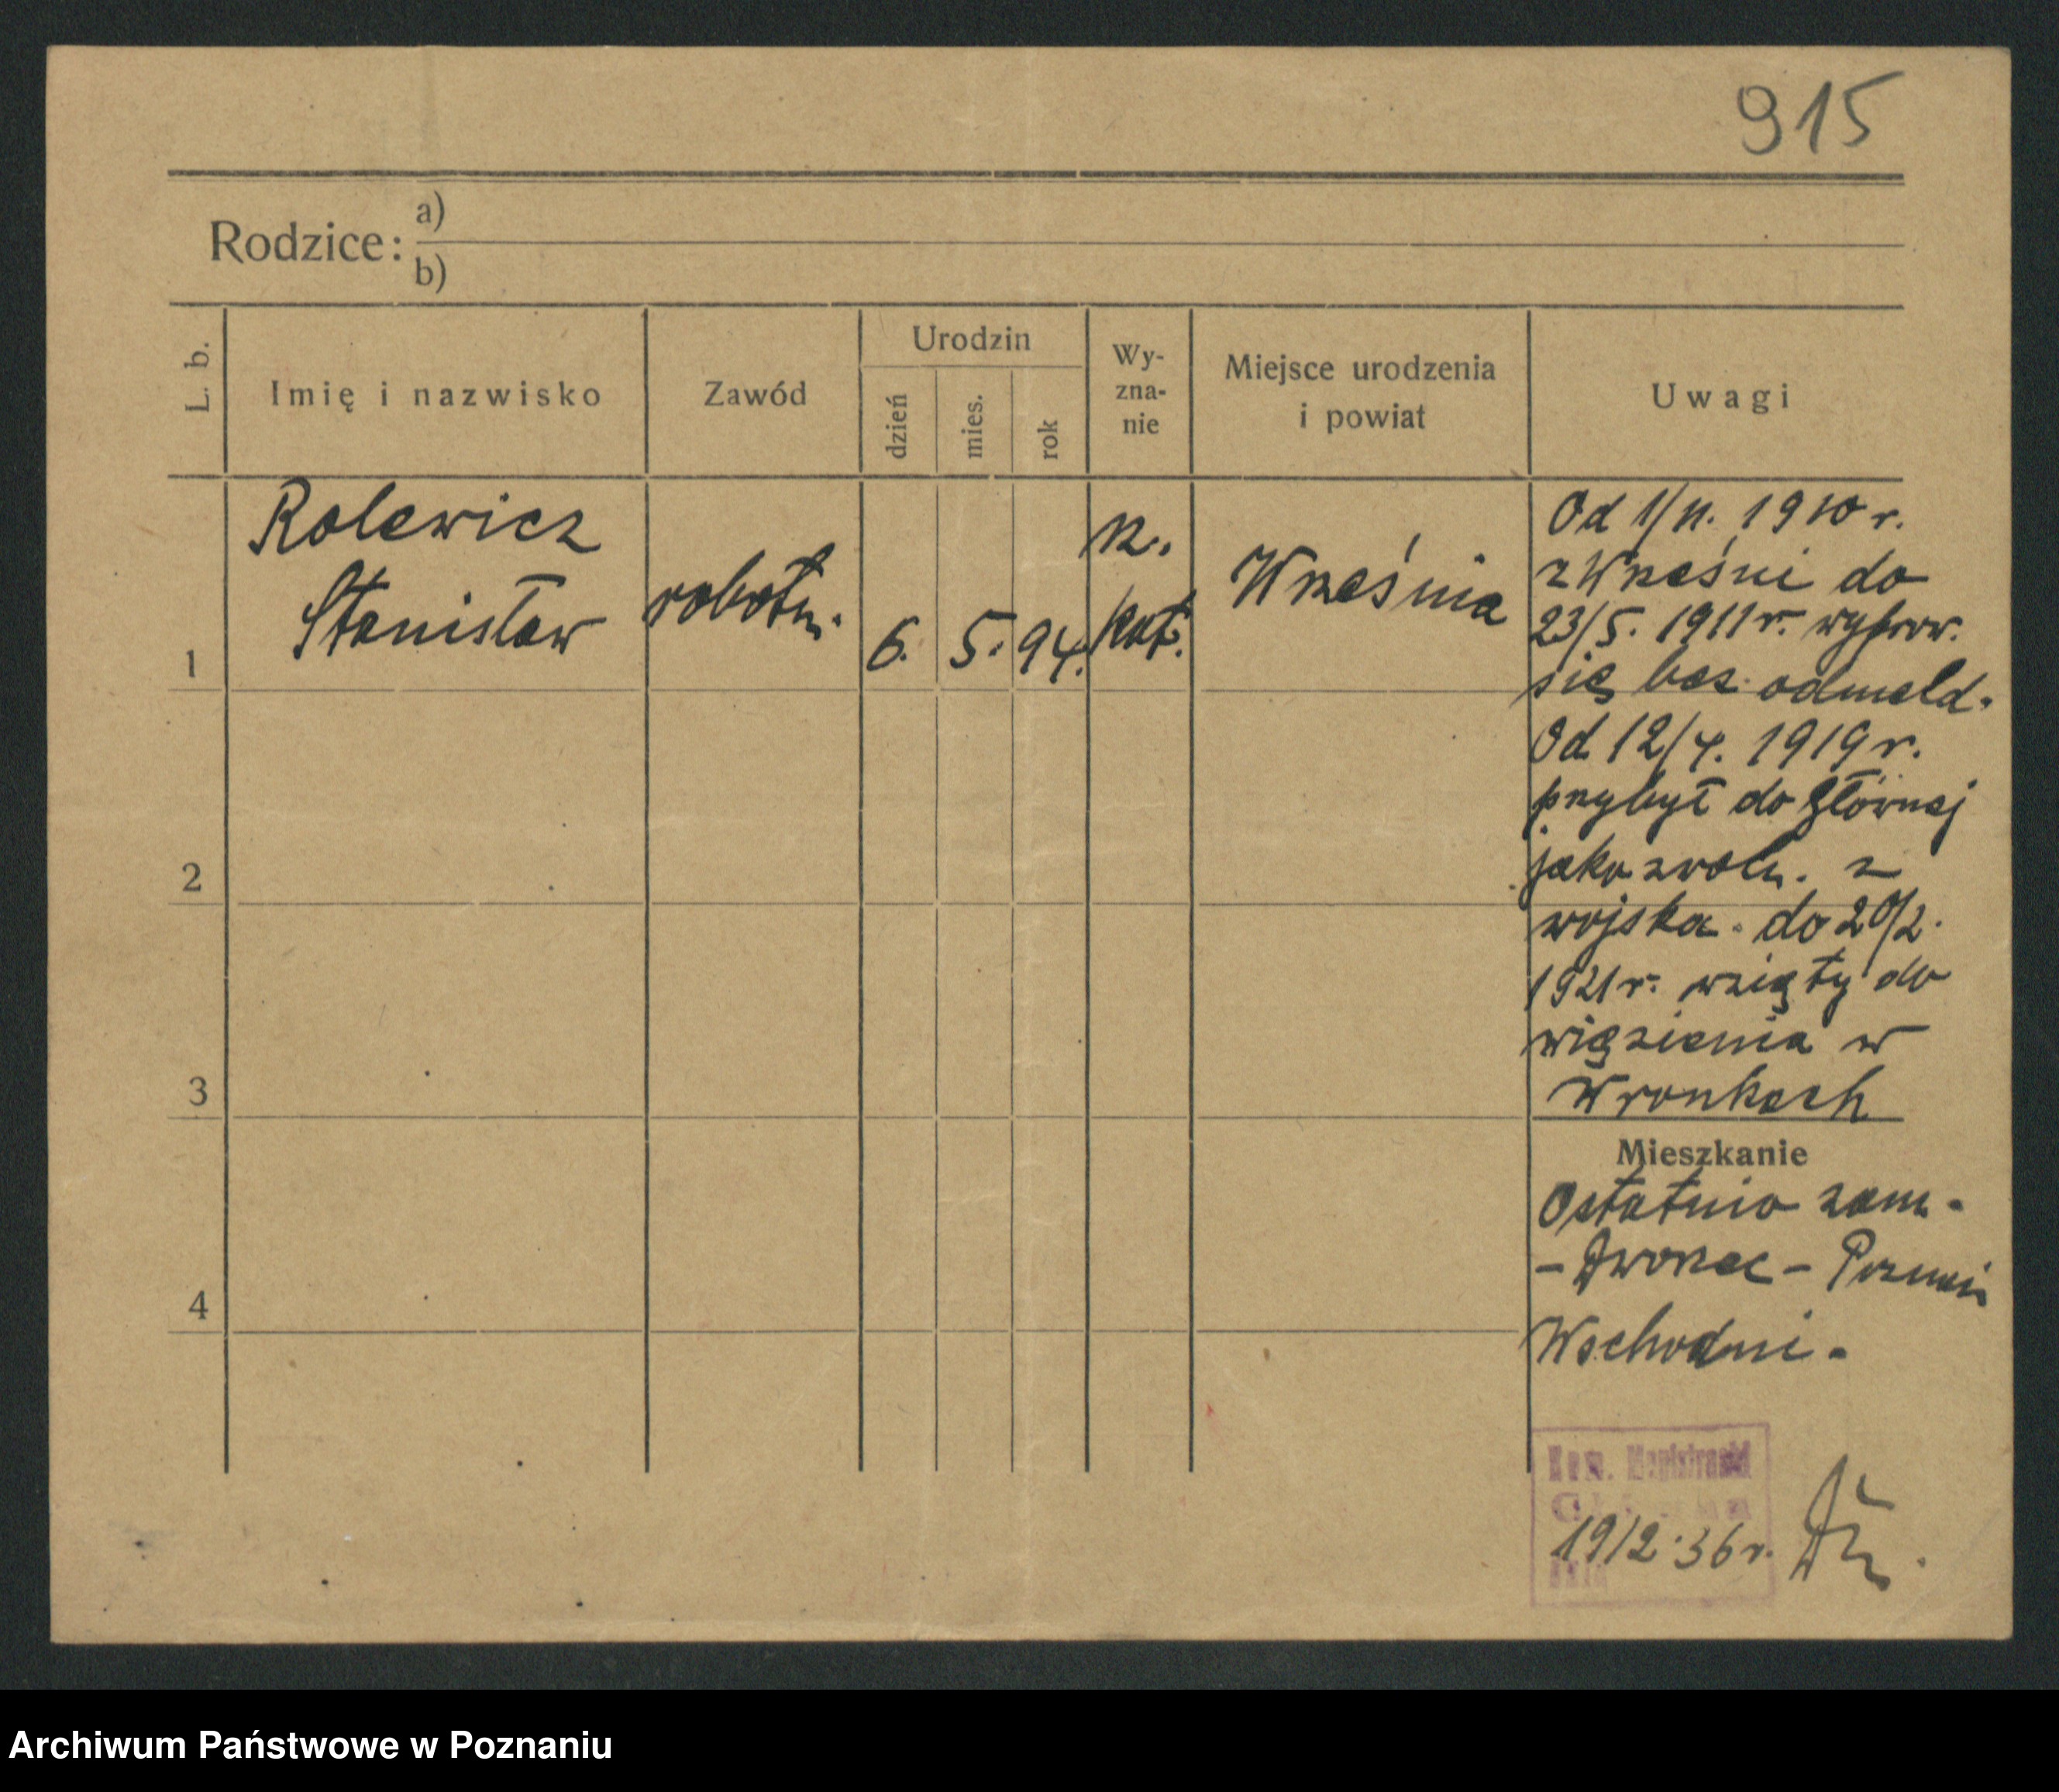 915
Rodzice: a)
b)
L. b. Imię i nazwisko Zawód Urodzin dzień mies. rok Wy-zna-nie Miejsce urodzenia i powiat Uwagi
1 Rolewicz
Stanisław
robotn.
6. 5. 94.
rz.
kat.
Września
Od 1/11. 1910 r.
z Wrześni do
23/5. 1911 r. wyprow.
się bez odmeld.
Od 12/4. 1919 r.
przybył do Głównej
jako zwoln. z
wojska. do 20/2.
1921 r. wzięty do
więzienia w
Wronkach
2
3
4
Mieszkanie
Ostatnio zam.
- Dworzec - Poznań
Wschodni.
Kom. Magistracki
19/2.36 r.
Archiwum Państwowe w Poznaniu